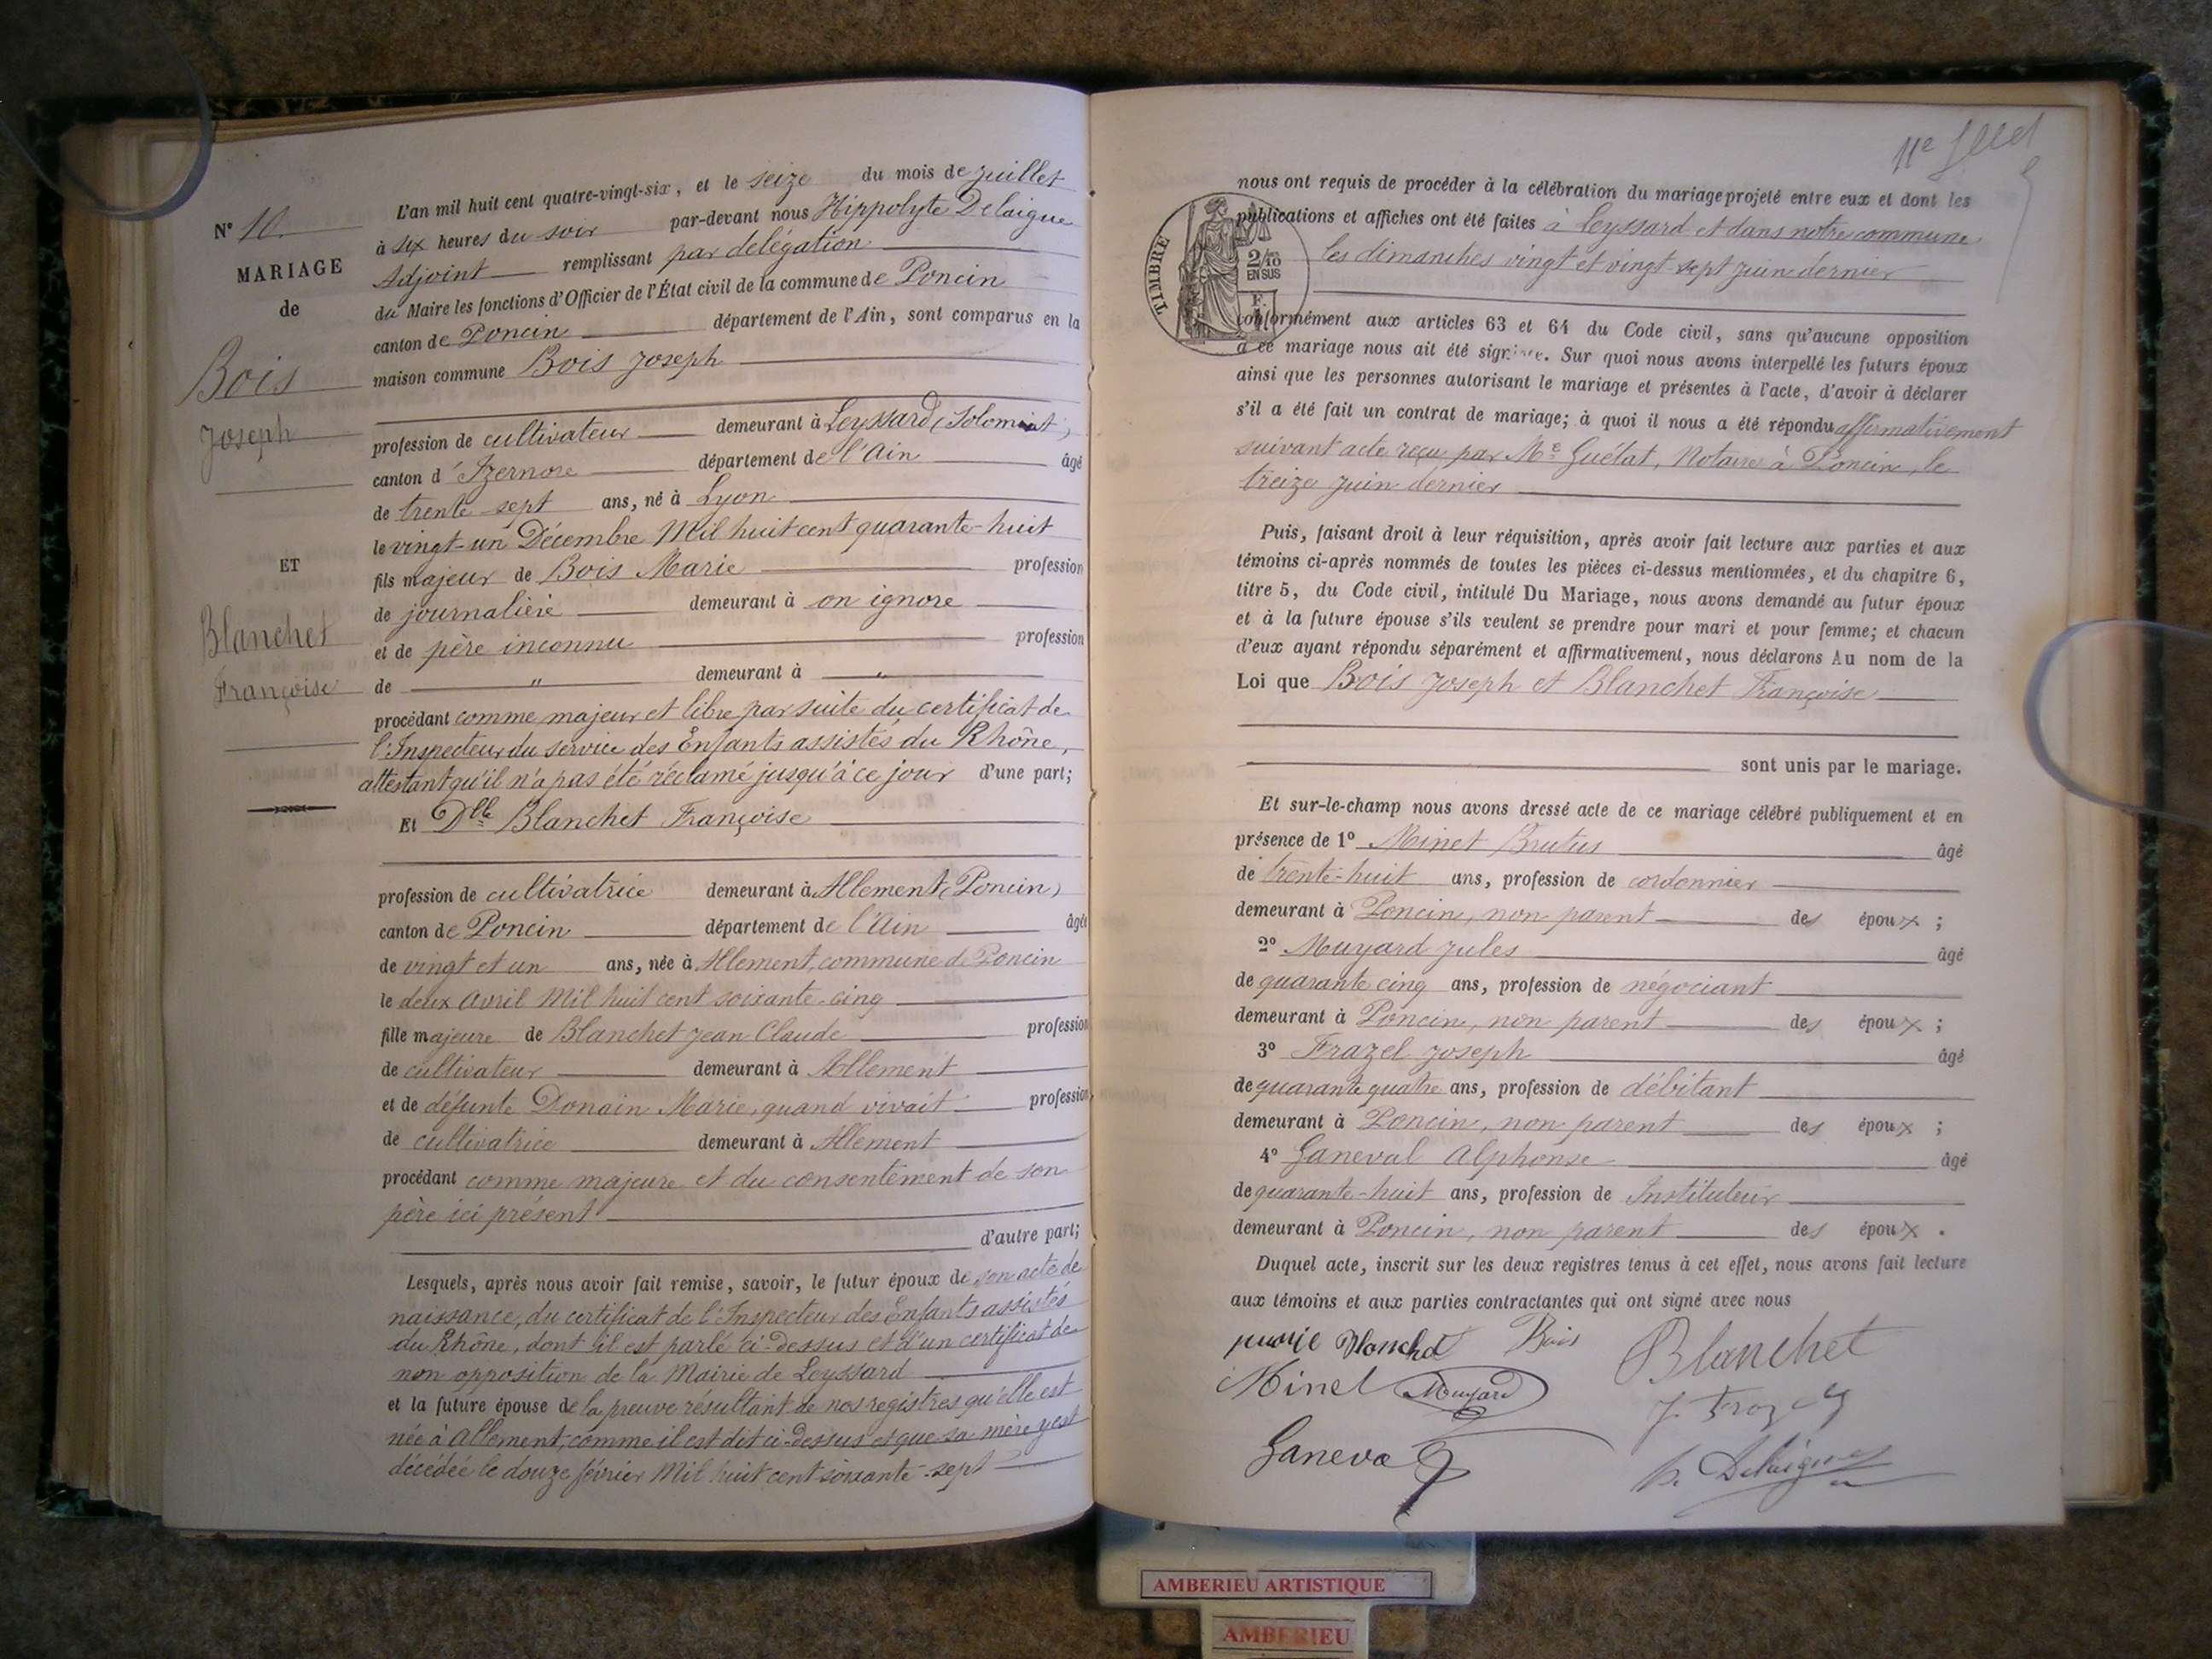 N° 10.
MARIAGE
de
Bois
Joseph
ET
Blanchet
Françoise
L'an mil huit cent quatre-vingt-six, et le seize du mois de juillet
à six heures du soir par-devant nous Hippolyte Delaigue
Adjoint remplissant par delégation
du Maire les fonctions d'Officier de l'État civil de la commune de Poncin
canton de Poncin département de l'Ain, sont comparus en la
maison commune Bois Joseph
profession de cultivateur demeurant à Leyssard (Solomiat)
canton d'Izernore département de l'Ain âgé
de trente-sept ans, né à Lyon
le vingt-un Décembre Mil huit cent quarante-huit
fils majeur de Bois Marie profession
de journalière demeurant à on ignore
et de père inconnu profession
de " demeurant à "
procédant comme majeur et libre par suite du certificat de
l'Inspecteur du service des Enfants assistés du Rhône,
attestant qu'il n'a pas été réclamé jusqu'à ce jour d'une part;
Et Dlle Blanchet Françoise
profession de cultivatrice demeurant à Allement (Poncin)
canton de Poncin département de l'Ain âgée
de vingt et un ans, née à Allement, commune de Poncin
le deux Avril Mil huit cent soixante-cinq
fille majeure de Blanchet Jean Claude profession
de cultivateur demeurant à Allement
et de défunte Donain Marie, quand vivait profession
de cultivatrice demeurant à Allement
procédant comme majeure et du consentement de son
père ici présent
d'autre part;
Lesquels, après nous avoir fait remise, savoir, le futur époux de son acte de
naissance, du certificat de l'Inspecteur des Enfants assistés
du Rhône, dont il est parlé ci-dessus et d'un certificat de
non opposition de la Mairie de Leyssard
et la future épouse de la preuve résultant de nos registres qu'elle est
née à Allement, comme il est dit ci-dessus et que sa mère y est
décédée le douze février Mil huit cent soixante-sept
11e
nous ont requis de procéder à la célébration du mariage projeté entre eux et dont les
publications et affiches ont été faites à Leyssard et dans notre commune
les dimanches vingt et vingt-sept juin dernier
TIMBRE
2/10
EN SUS
F.
conformément aux articles 63 et 64 du Code civil, sans qu'aucune opposition
à ce mariage nous ait été signifiée. Sur quoi nous avons interpellé les futurs époux
ainsi que les personnes autorisant le mariage et présentes à l'acte, d'avoir à déclarer
s'il a été fait un contrat de mariage; à quoi il nous a été répondu affirmativement
suivant acte reçu par Me Guélat, Notaire à Poncin, le
treize juin dernier
Puis, faisant droit à leur réquisition, après avoir fait lecture aux parties et aux
témoins ci-après nommés de toutes les pièces ci-dessus mentionnées, et du chapitre 6,
titre 5, du Code civil, intitulé Du Mariage, nous avons demandé au futur époux
et à la future épouse s'ils veulent se prendre pour mari et pour femme; et chacun
d'eux ayant répondu séparément et affirmativement, nous déclarons Au nom de la
Loi que Bois Joseph et Blanchet Françoise
sont unis par le mariage.
Et sur-le-champ nous avons dressé acte de ce mariage célébré publiquement et en
présence de 1° Minet Brutus âgé
de trente-huit ans, profession de cordonnier
demeurant à Poncin, non parent des époux ;
2° Muyard Jules âgé
de quarante cinq ans, profession de négociant
demeurant à Poncin, non parent des époux ;
3° Frazel Joseph âgé
de quarante quatre ans, profession de débitant
demeurant à Poncin, non parent des époux ;
4° Ganeval Alphonse âgé
de quarante-huit ans, profession de Instituteur
demeurant à Poncin, non parent des époux .
Duquel acte, inscrit sur les deux registres tenus à cet effet, nous avons fait lecture
aux témoins et aux parties contractantes qui ont signé avec nous
Blanchet Bois Blanchet
Minet Muyard J. Frazel
Ganeval h. Delaigue
AMBERIEU ARTISTIQUE
AMBERIEU